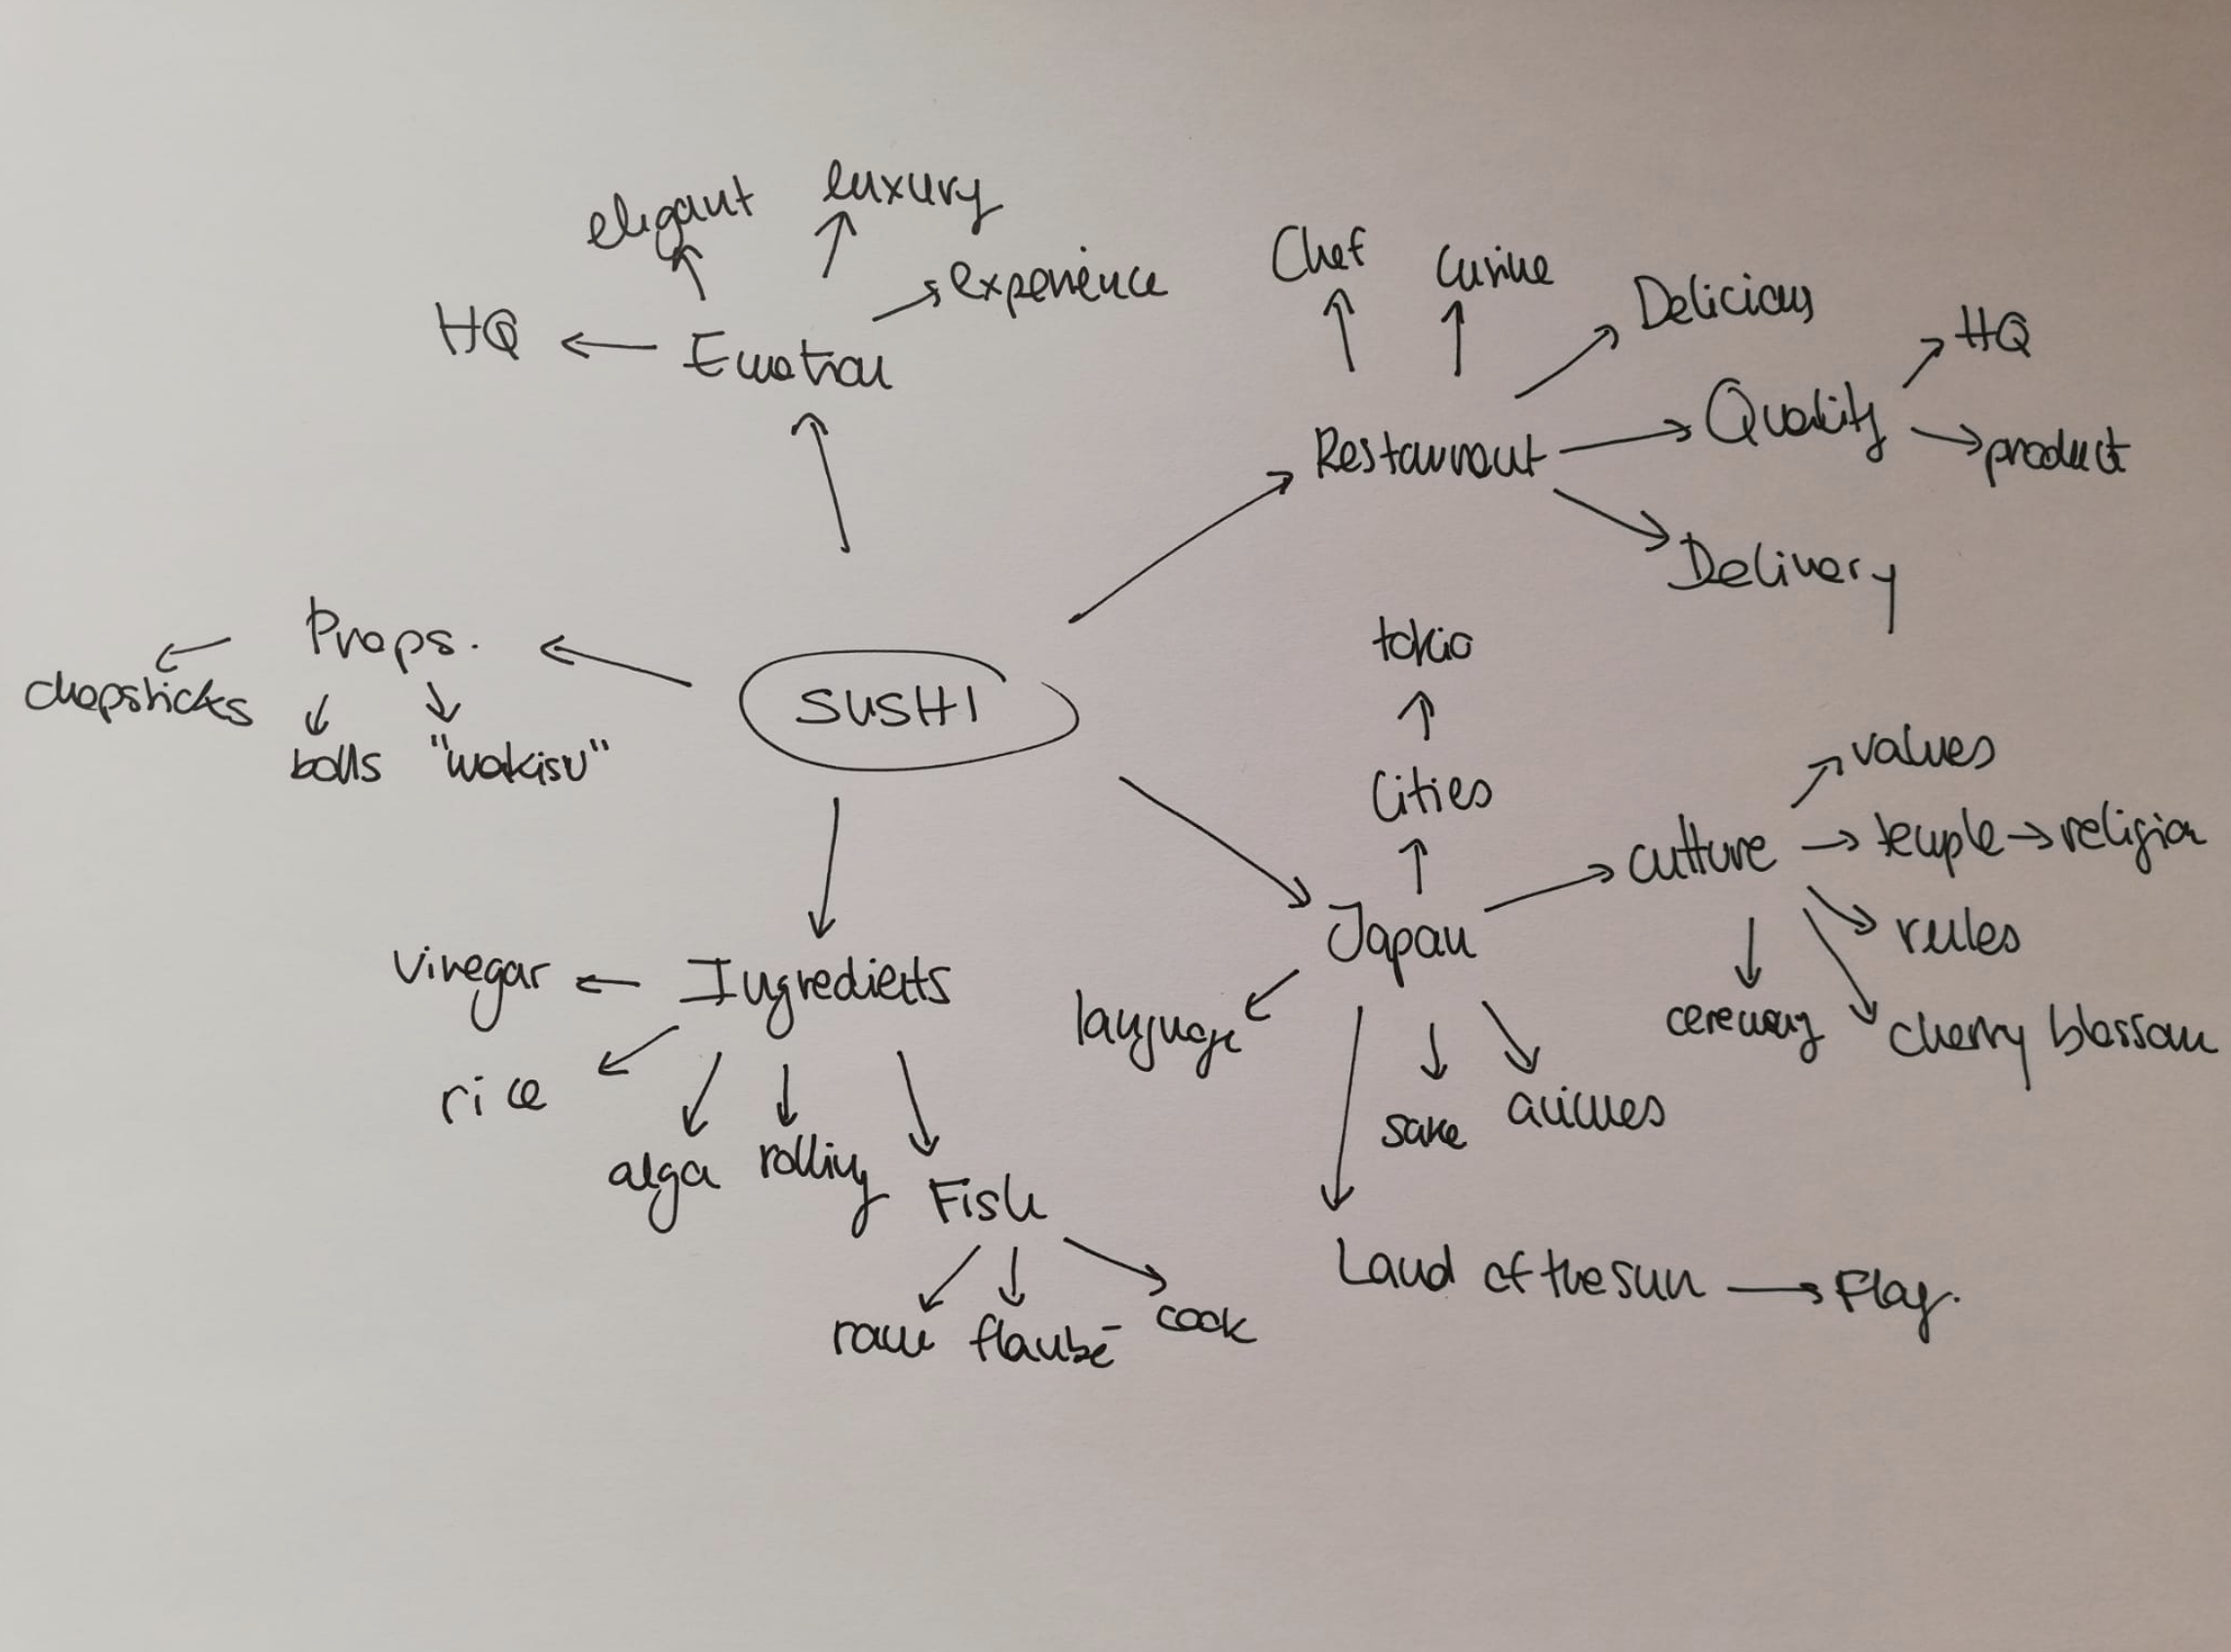 elegant
luxury
experience
HQ
Emotion
Chef
Cusine
Delicious
HQ
Quality
product
Restaurant
Delivery
Props.
chopsticks
bolls
"makisu"
SUSHI
tokio
Cities
values
culture
temple
religion
rules
ceremony
cherry blossom
Japan
language
sake
animes
Land of the sun
Flag.
Vinegar
Ingredients
rice
alga
rolling
Fish
raw
flambé
cook